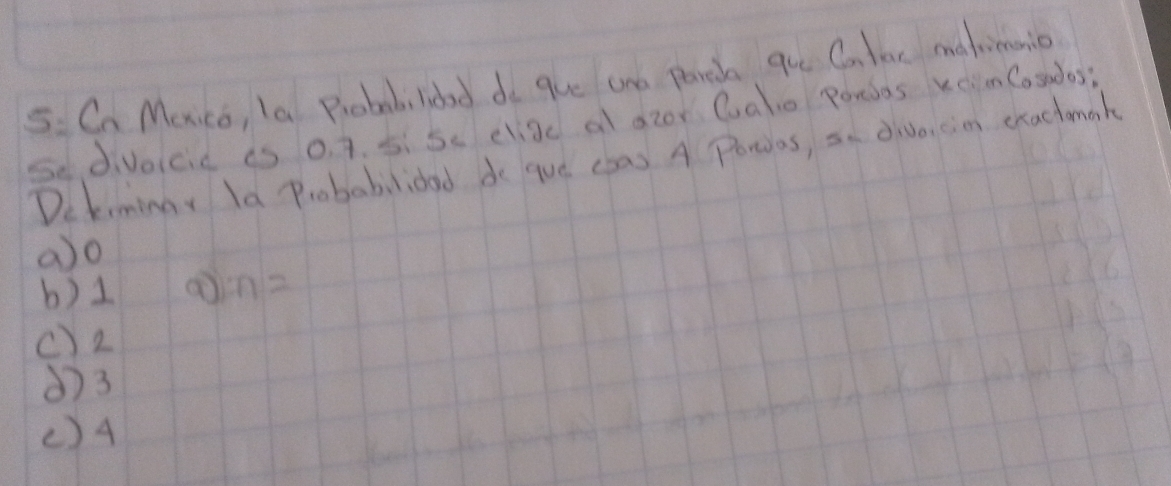 5. En Mexico, la Probabilidad de que una Pareja que Contrae matrimonio
Se divorcie es 0.7. si se elige al azar Cuatro Parejas recien Casados:
Determinar la Probabilidad de que esas 4 Parejas, se divorcien exactamente
a) 0
b) 1 a) n=
c) 2
d) 3
e) 4